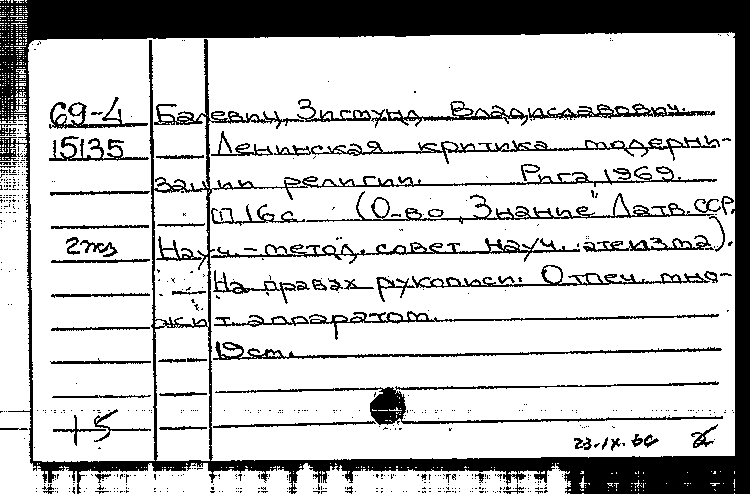 69-4 Балевич, Зигмунд Владиславович.
15135 Ленинская критика модерни-
зации религии. Рига, 1969.
16 с. (О-во "Знание" Латв. ССР.
2 экз Науч.-метод. совет науч. атеизма).
На правах рукописи. Отпеч. мно-
жит. аппаратом.
19 см.
15
23.IX.